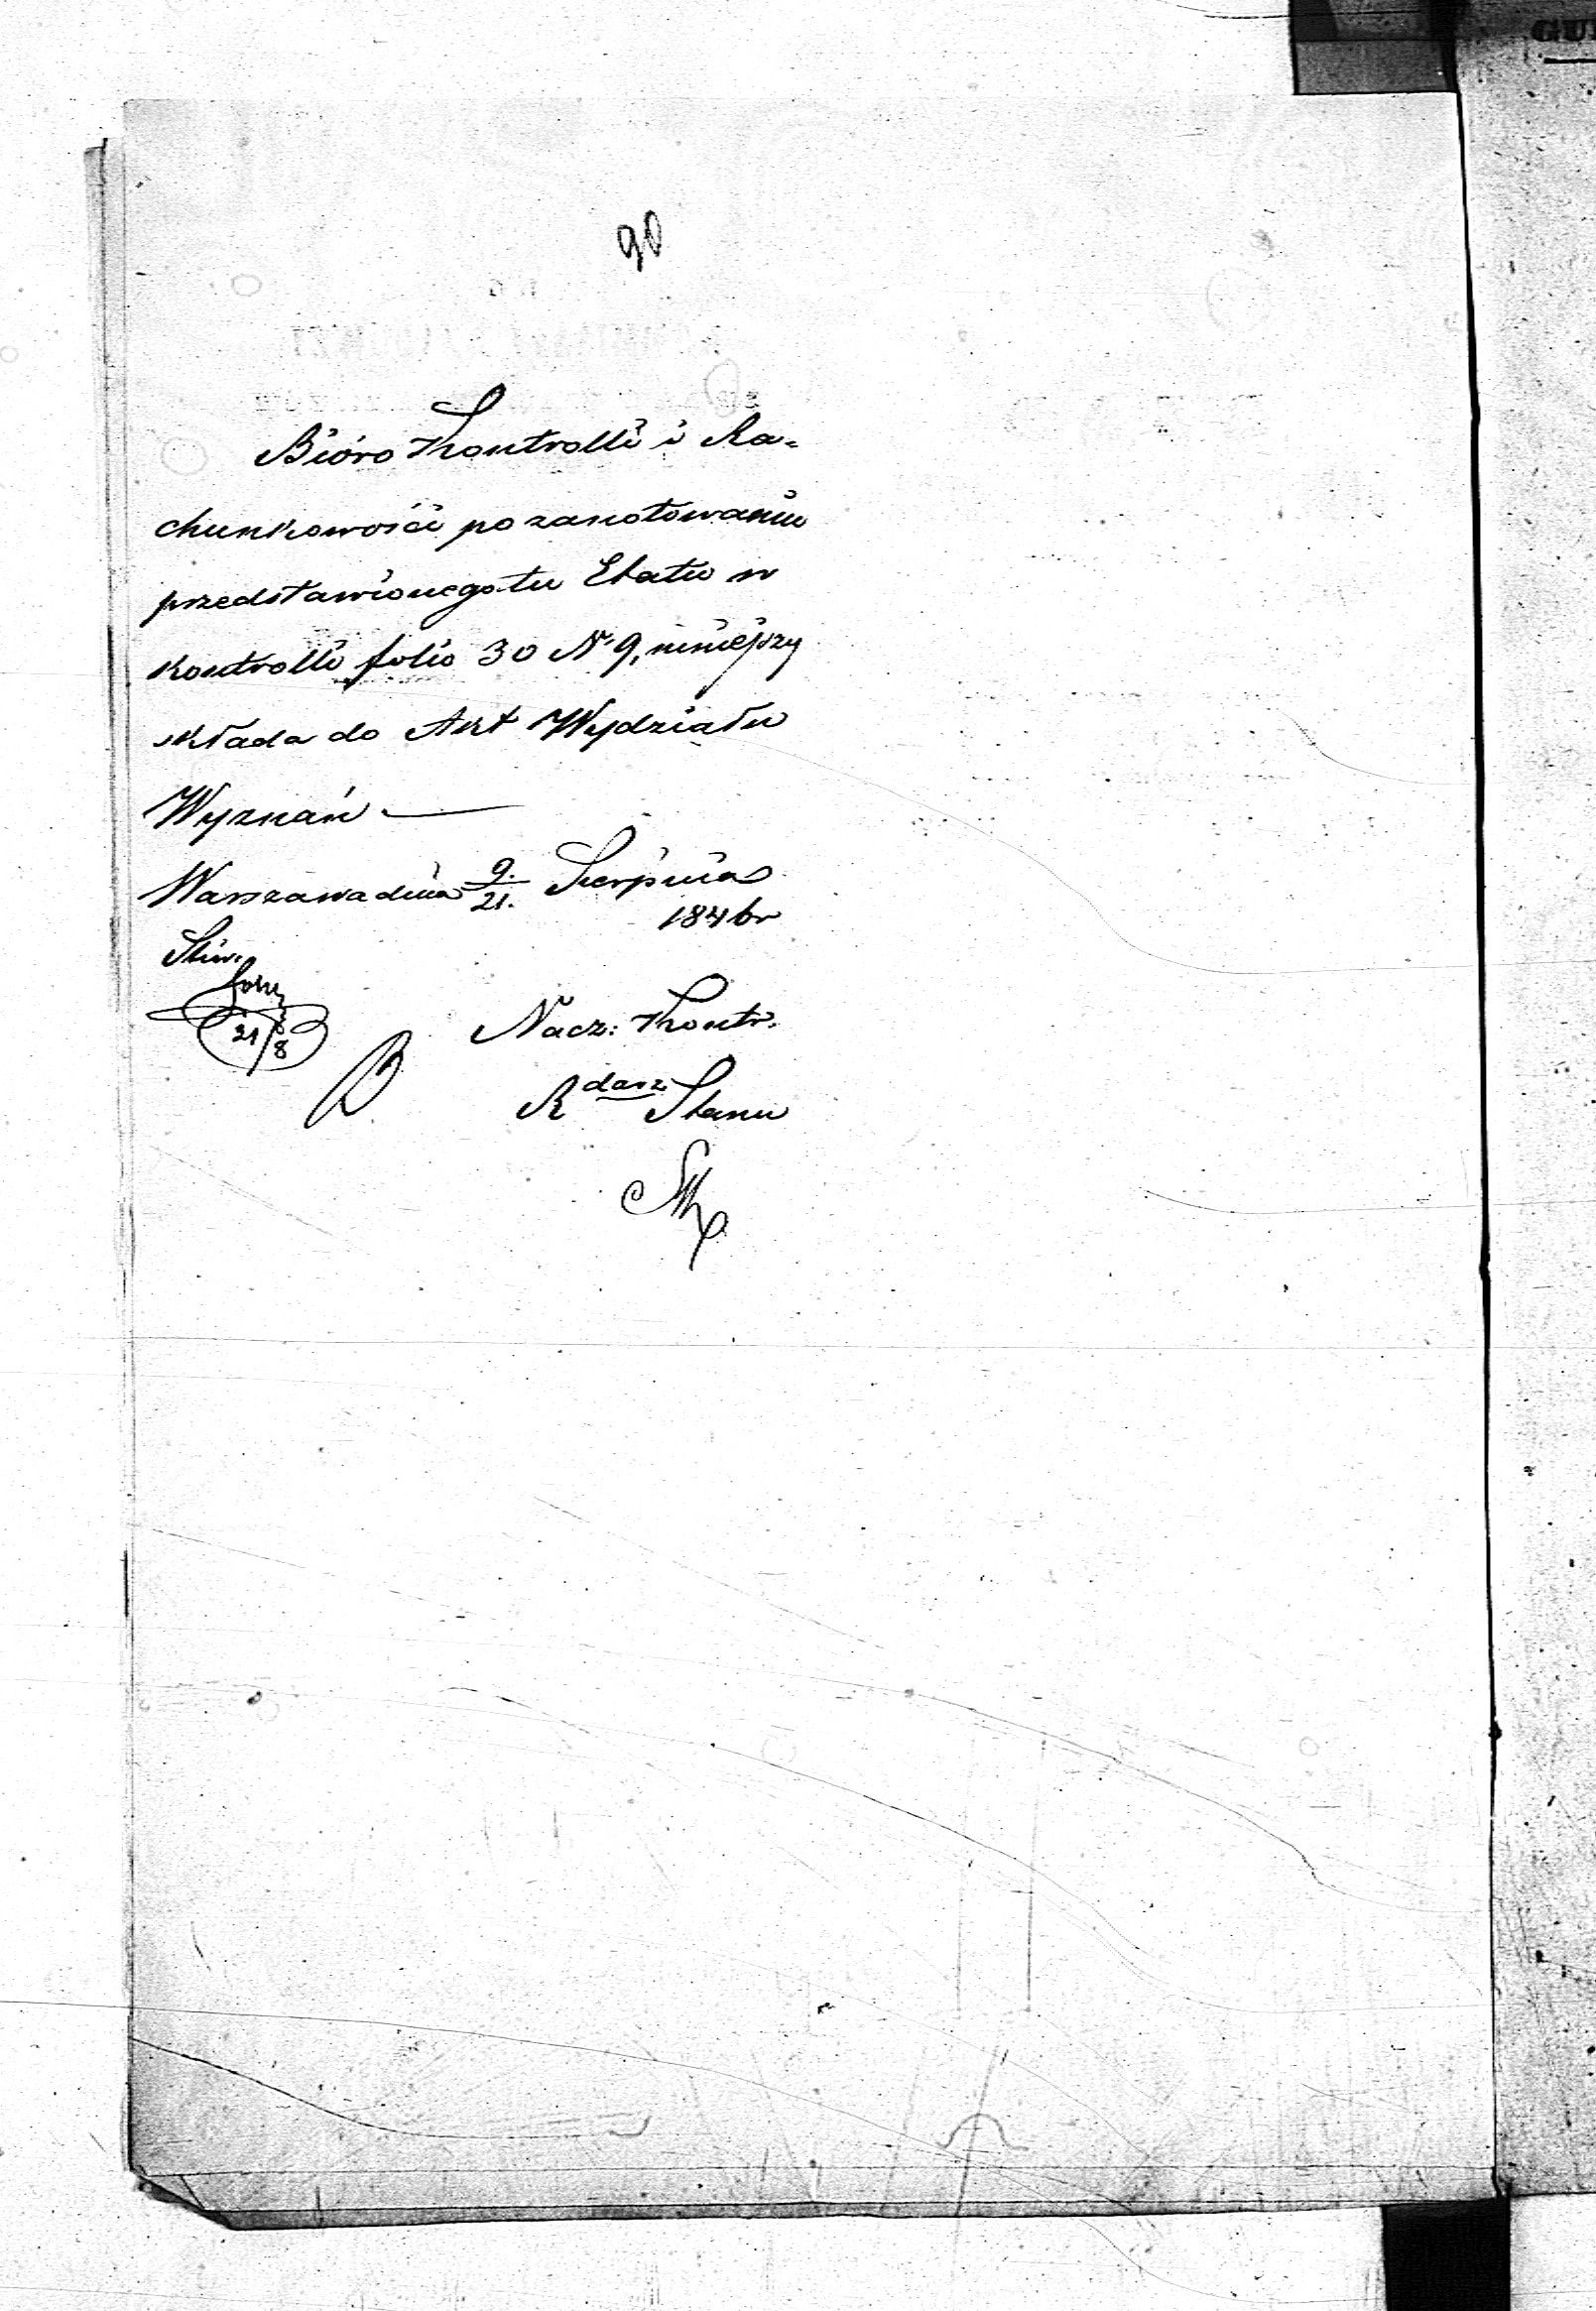 90
Bióro Kontrolli i Ra-
chunkowości po zanotowaniu
przedstawionego tu Etatu w
Kontrolli folio 30 Nr 9, niniejszy
składa do Akt Wydziału
Wyznań —
Warszawa dnia 9/21. Sierpnia
1846 r
21/8
Nacz: Kontr.
Rdarz Stanu